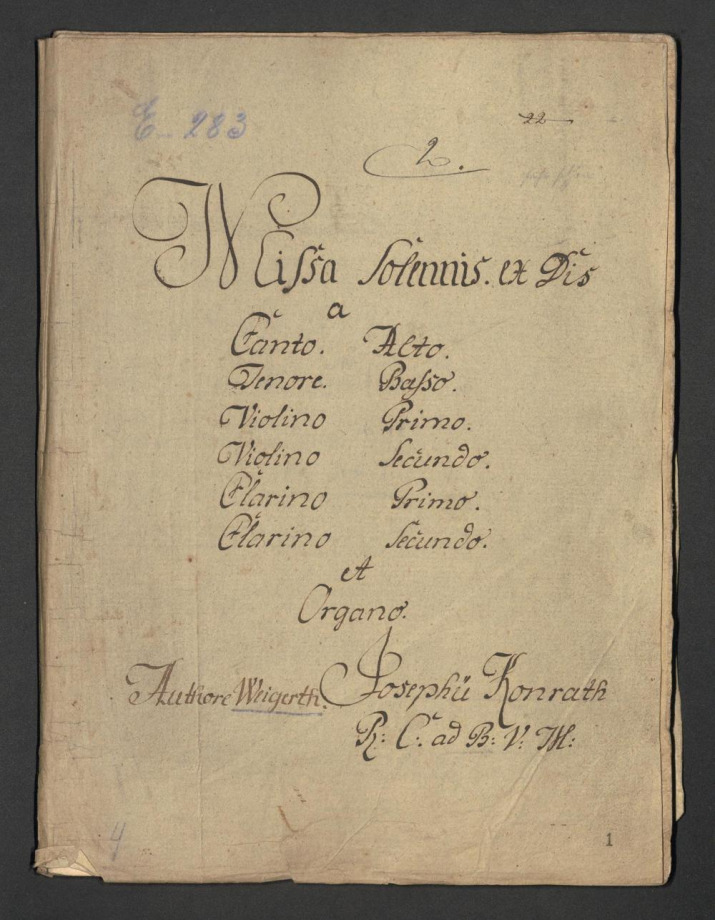 E_ 283
22
2.
Missa Solennis. ex Dis
a
Canto. Alto.
Tenore. Basso.
Violino Primo.
Violino Secundo.
Clarino Primo.
Clarino Secundo.
et
Organo.
Authore Weigerth. Josephü Konrath
R: C: ad B: V: M:
4
1